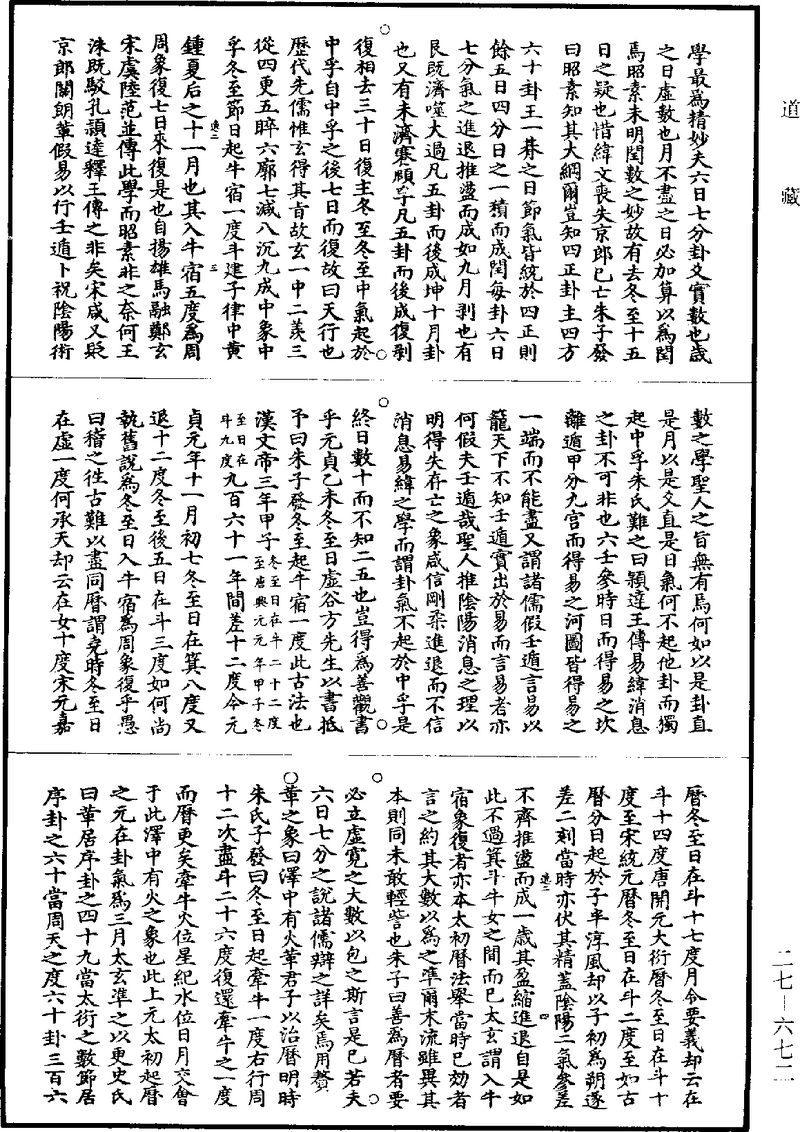 道藏
學最爲精妙夫六日七分卦爻實數也歲
之日虛數也月不盡之日必加算以爲閏
馬昭素未明閏數之妙故有去冬至十五
日之疑也惜緯文喪失京郎已亡朱子發
曰昭素知其大綱爾豈知四正卦主四方
六十卦王一朞之日節氣皆統於四正則
餘五日四分日之一積而成閏每卦六日
七分氣之進退推盪而成如九月剥也有
艮既濟噬大過凡五卦而後成坤十月卦
也又有未濟蹇頤孚凡五卦而後成復剥
復相去三十日復主冬至冬至中氣起於
中孚自中孚之後七日而復故曰天行也
歷代先儒惟玄得其旨故玄一中二羨三
從四更五睟六廓七減八沉九成中象中
孚冬至節日起牛宿一度斗建子律中黄
鍾夏后之十一月也其入牛宿五度爲周
周象復七日來復是也自揚雄馬融鄭玄
宋虞陸范並傳此學而昭素非之奈何王
洙既駁孔頴達釋王傳之非矣宋咸又貶
京郎關朗輩假易以行壬遁卜祝陰陽術
數之學聖人之旨無有焉何如以是卦直
是月以是爻直是日氣何不起他卦而獨
起中孚朱氏難之曰顥達王傳易緯消息
之卦不可非也六壬參時日而得易之坎
離遁甲分九宫而得易之河圖皆得易之
一端而不能盡又謂諸儒假壬遁言易以
籠天下不知壬遁實出於易而言易者亦
何假夫壬遁哉聖人推陰陽消息之理以
明得失存亡之象咸信剛柔進退而不信
消息易緯之學而謂卦氣不起於中孚是
終日數十而不知二五也豈得爲善觀書
乎元貞乙未冬至日虛谷方先生以書抵
予曰朱子發冬至起牛宿一度此古法也
漢文帝三年甲子冬至日在斗二十二度至唐興元元年甲子冬
至日在斗九度九百六十一年間差十二度今元
貞元年十一月初七冬至日在箕八度又
退十二度冬至後五日在斗三度如何尚
執舊說爲冬至日入牛宿爲周象復乎愚
曰稽之徃古難以盡同曆謂堯時冬至日
在虛一度何承天却云在女十度宋元嘉
曆冬至日在斗十七度月令要義却云在
斗十四度唐開元大衍曆冬至日在斗十
度至宋統元曆冬至日在斗二度至如古
曆分日起於子半淳風却以子初爲朔遂
差二刻當時亦伏其精蓋陰陽二氣參差
不齊推盪而成一歲其盈縮進退自是如
此不過箕斗牛女之間而已太玄謂入牛
宿象復者亦本太初曆法舉當時已効者
言之約其大數以爲之準爾末流雖異其
本則同未敢輕訾也朱子曰善爲曆者要
必立虛寬之大數以包之斯言是已若夫
六日七分之說諸儒辯之詳矣馬用贅
革之象曰澤中有火革君子以治曆明時
朱氏子發曰冬至日起牽牛一度右行周
十二次盡斗二十六度復還牽牛之一度
而曆更矣牽牛火位星紀水位日月交會
于此澤中有火之象也此上元太初起曆
之元在卦氣爲三月太玄準之以更史氏
曰革居序卦之四十九當太衍之數節居
序卦之六十當周天之度六十卦三百六
二七—六七二